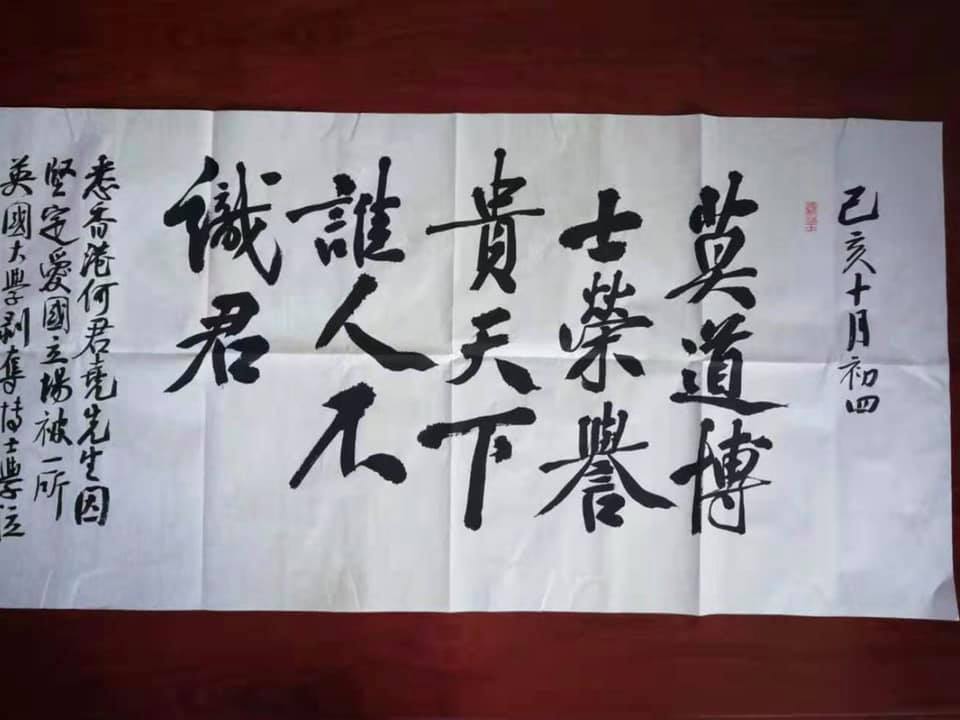 己亥十月初四
莫道博
士榮譽
貴天下
誰人不
識君
悉香港何君堯先生因
堅定愛國立場被一所
英國大學剥奪博士學位